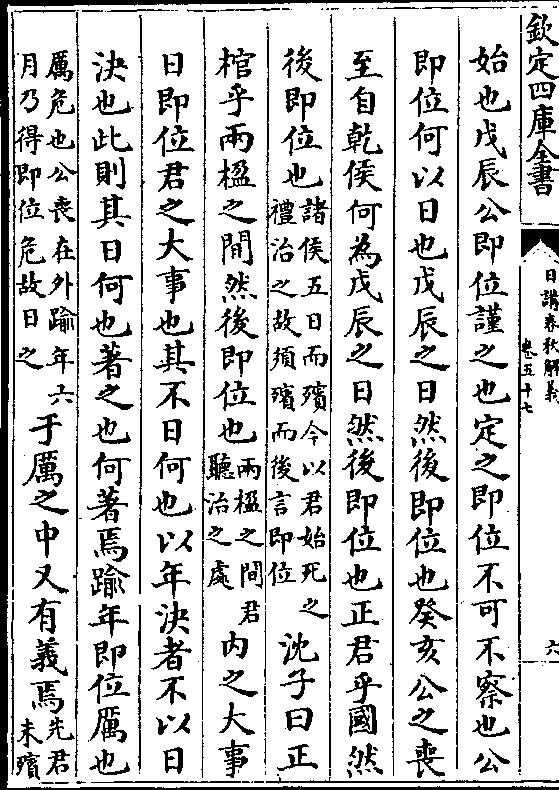 欽定四庫全書
日講春秋解義
卷五十七
六
始也戊辰公即位謹之也定之即位不可不察也公
即位何以日也戊辰之日然後即位也癸亥公之喪
至自乾侯何為戊辰之日然後即位也正君乎國然
後即位也諸侯五日而殯今以君始死之禮治之故須殯而後言即位沈子曰正
棺乎兩楹之間然後即位也兩楹之間君聽治之處內之大事
日即位君之大事也其不日何也以年決者不以日
決也此則其日何也著之也何著焉踰年即位厲也
厲危也公喪在外踰年六月乃得即位危故日之于厲之中又有義焉先君未殯